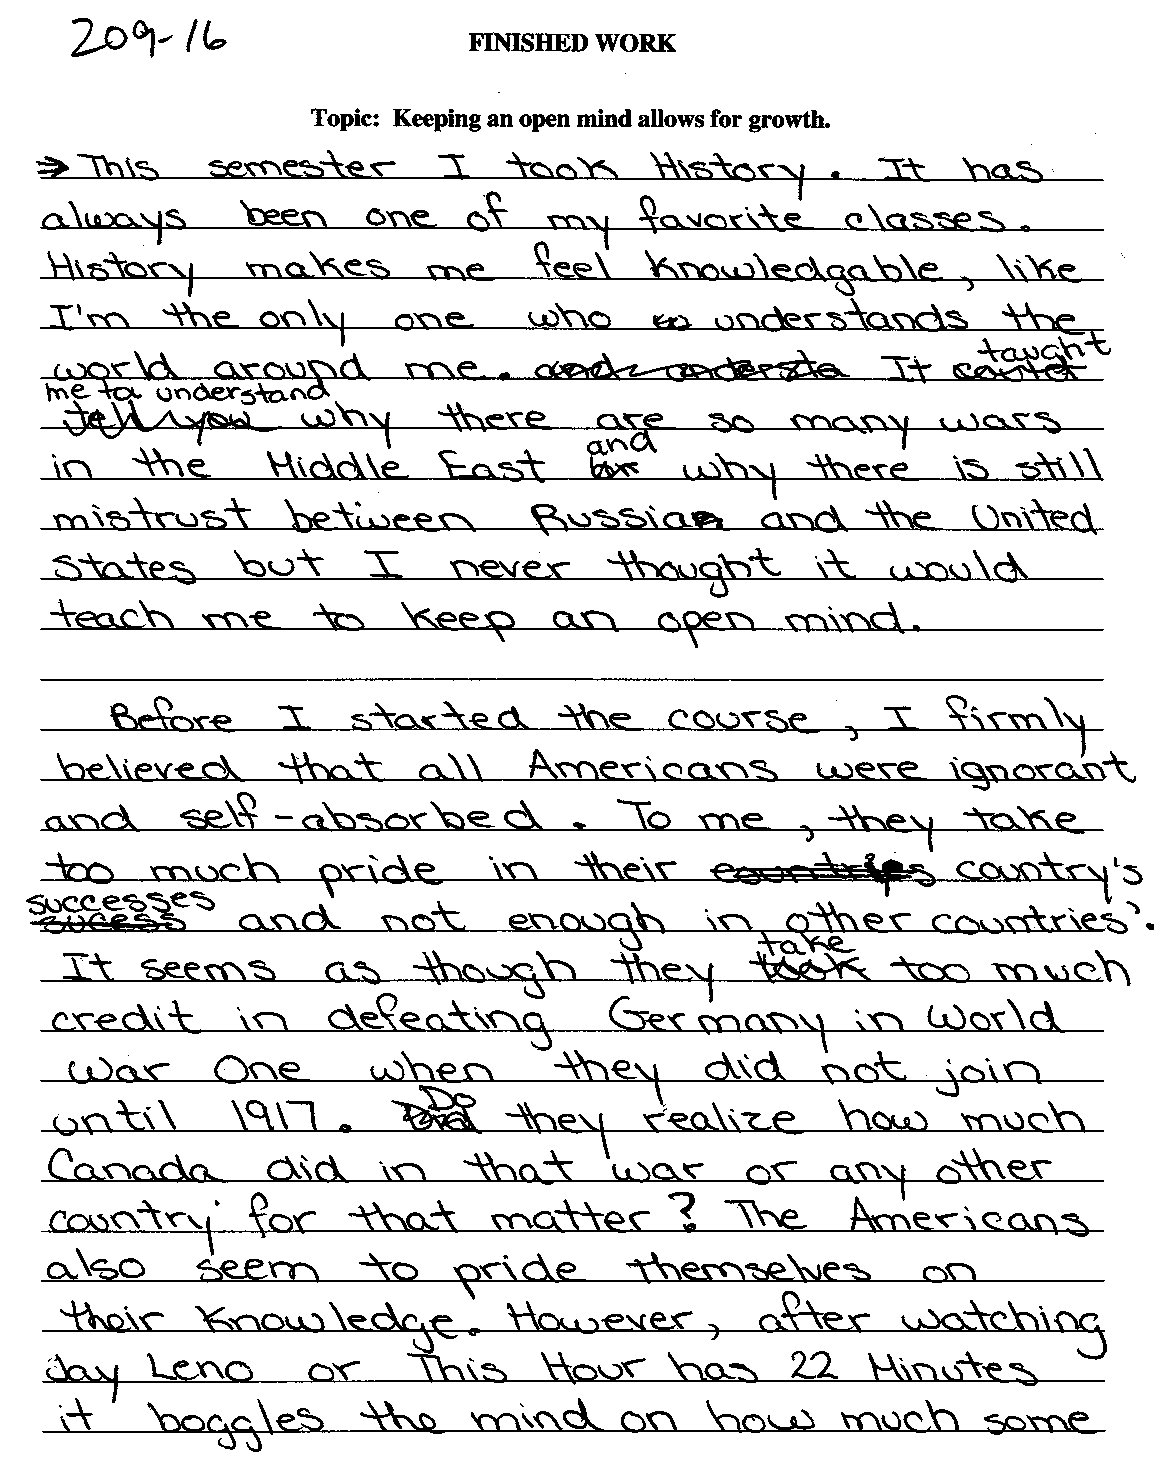 209-16
FINISHED WORK
Topic: Keeping an open mind allows for growth.
⇒ This semester I took History. It has
always been one of my favorite classes.
History makes me feel knowledgable, like
I'm the only one who understands the
world around me. It taught
me to understand
why there are so many wars
in the Middle East and why there is still
mistrust between Russia and the United
States but I never thought it would
teach me to keep an open mind.
Before I started the course, I firmly
believed that all Americans were ignorant
and self-absorbed. To me, they take
too much pride in their country's
successes and not enough in other countries'.
It seems as though they take too much
credit in defeating Germany in World
War One when they did not join
until 1917. Do they realize how much
Canada did in that war or any other
country for that matter? The Americans
also seem to pride themselves on
their knowledge. However, after watching
Jay Leno or This Hour has 22 Minutes
it boggles the mind on how much some